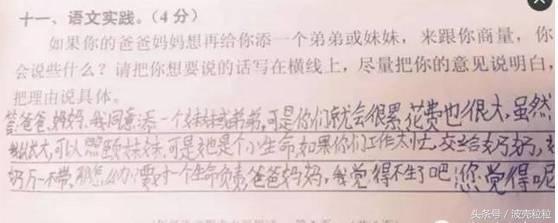 十一、语文实践。(4分)
如果你的爸爸妈妈想再给你添一个弟弟或妹妹，来跟你商量，你
会说些什么？请把你想要说的话写在横线上，尽量把你的意见说明白，
把理由说具体。
答:爸爸、妈妈，我同意添一个妹妹或弟弟，可是你们就会很累，花费也很大，虽然
我长大，可以照顾妹妹，可是她是个小生命，如果你们工作太忙，交给奶奶，
奶万一不带，那怎么办？要对一个生命负责，爸爸妈妈，我觉得不生了吧，您觉得呢
头条号/波壳粒粒